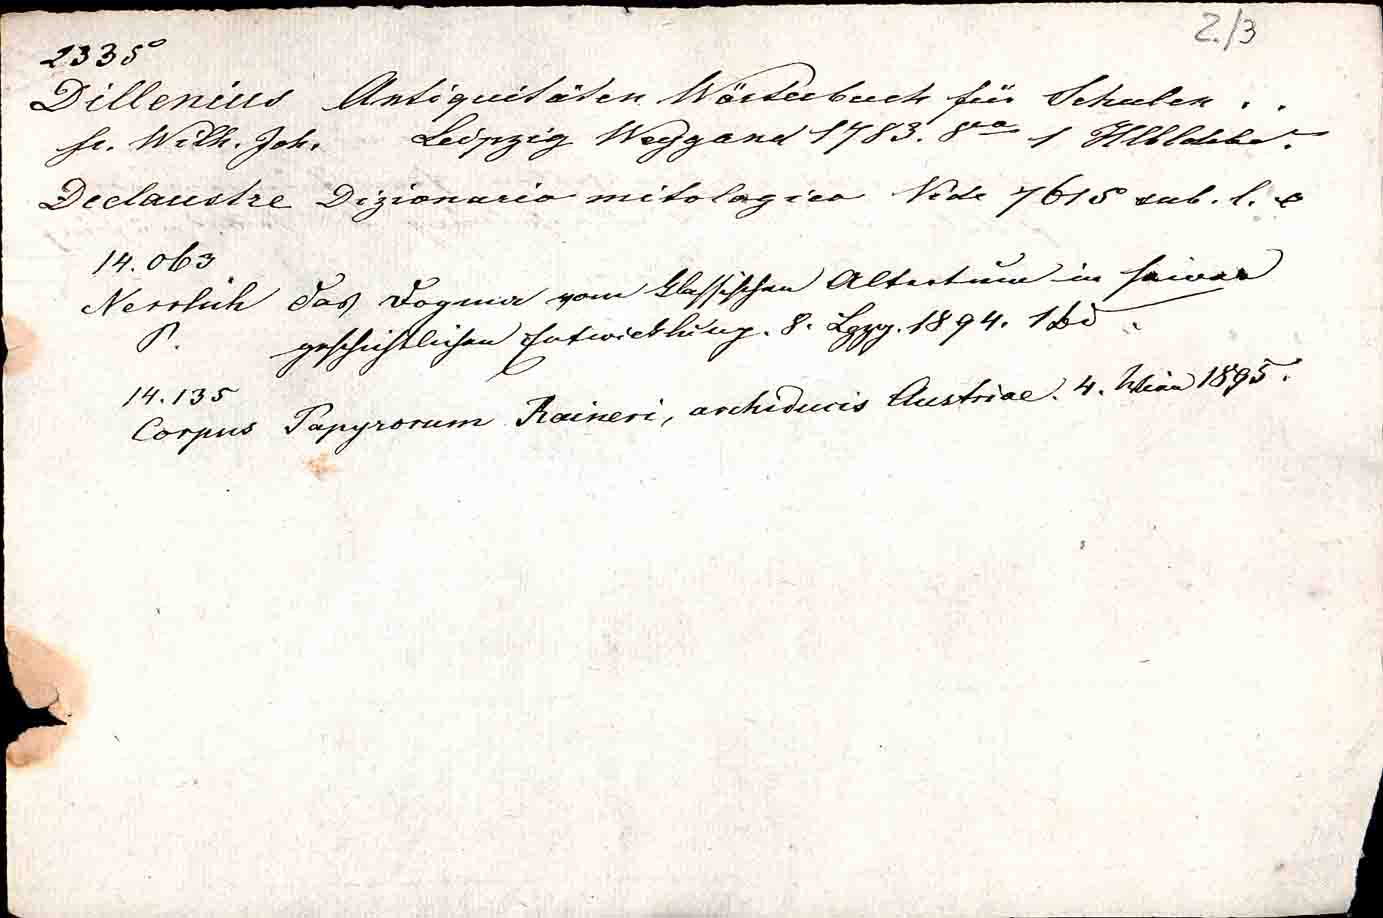 2./3
2335
Dillenius Antiquitäten Wörterbuch für Schulen . .
fr. Wilh. Joh. Leipzig Weygand 1783. 8vo 1
Declaustre Dizionario mitologico Vide 7615 sub. l. e
14.063
Nerrlich Das Dogma vom klassischen Altertum in seiner
P. geschichtlichen Entwicklung. 8. Lpzg. 1894. 1 Bd.
14.135
Corpus Papyrorum Raineri, archiducis Austriae. 4. Wien 1895.